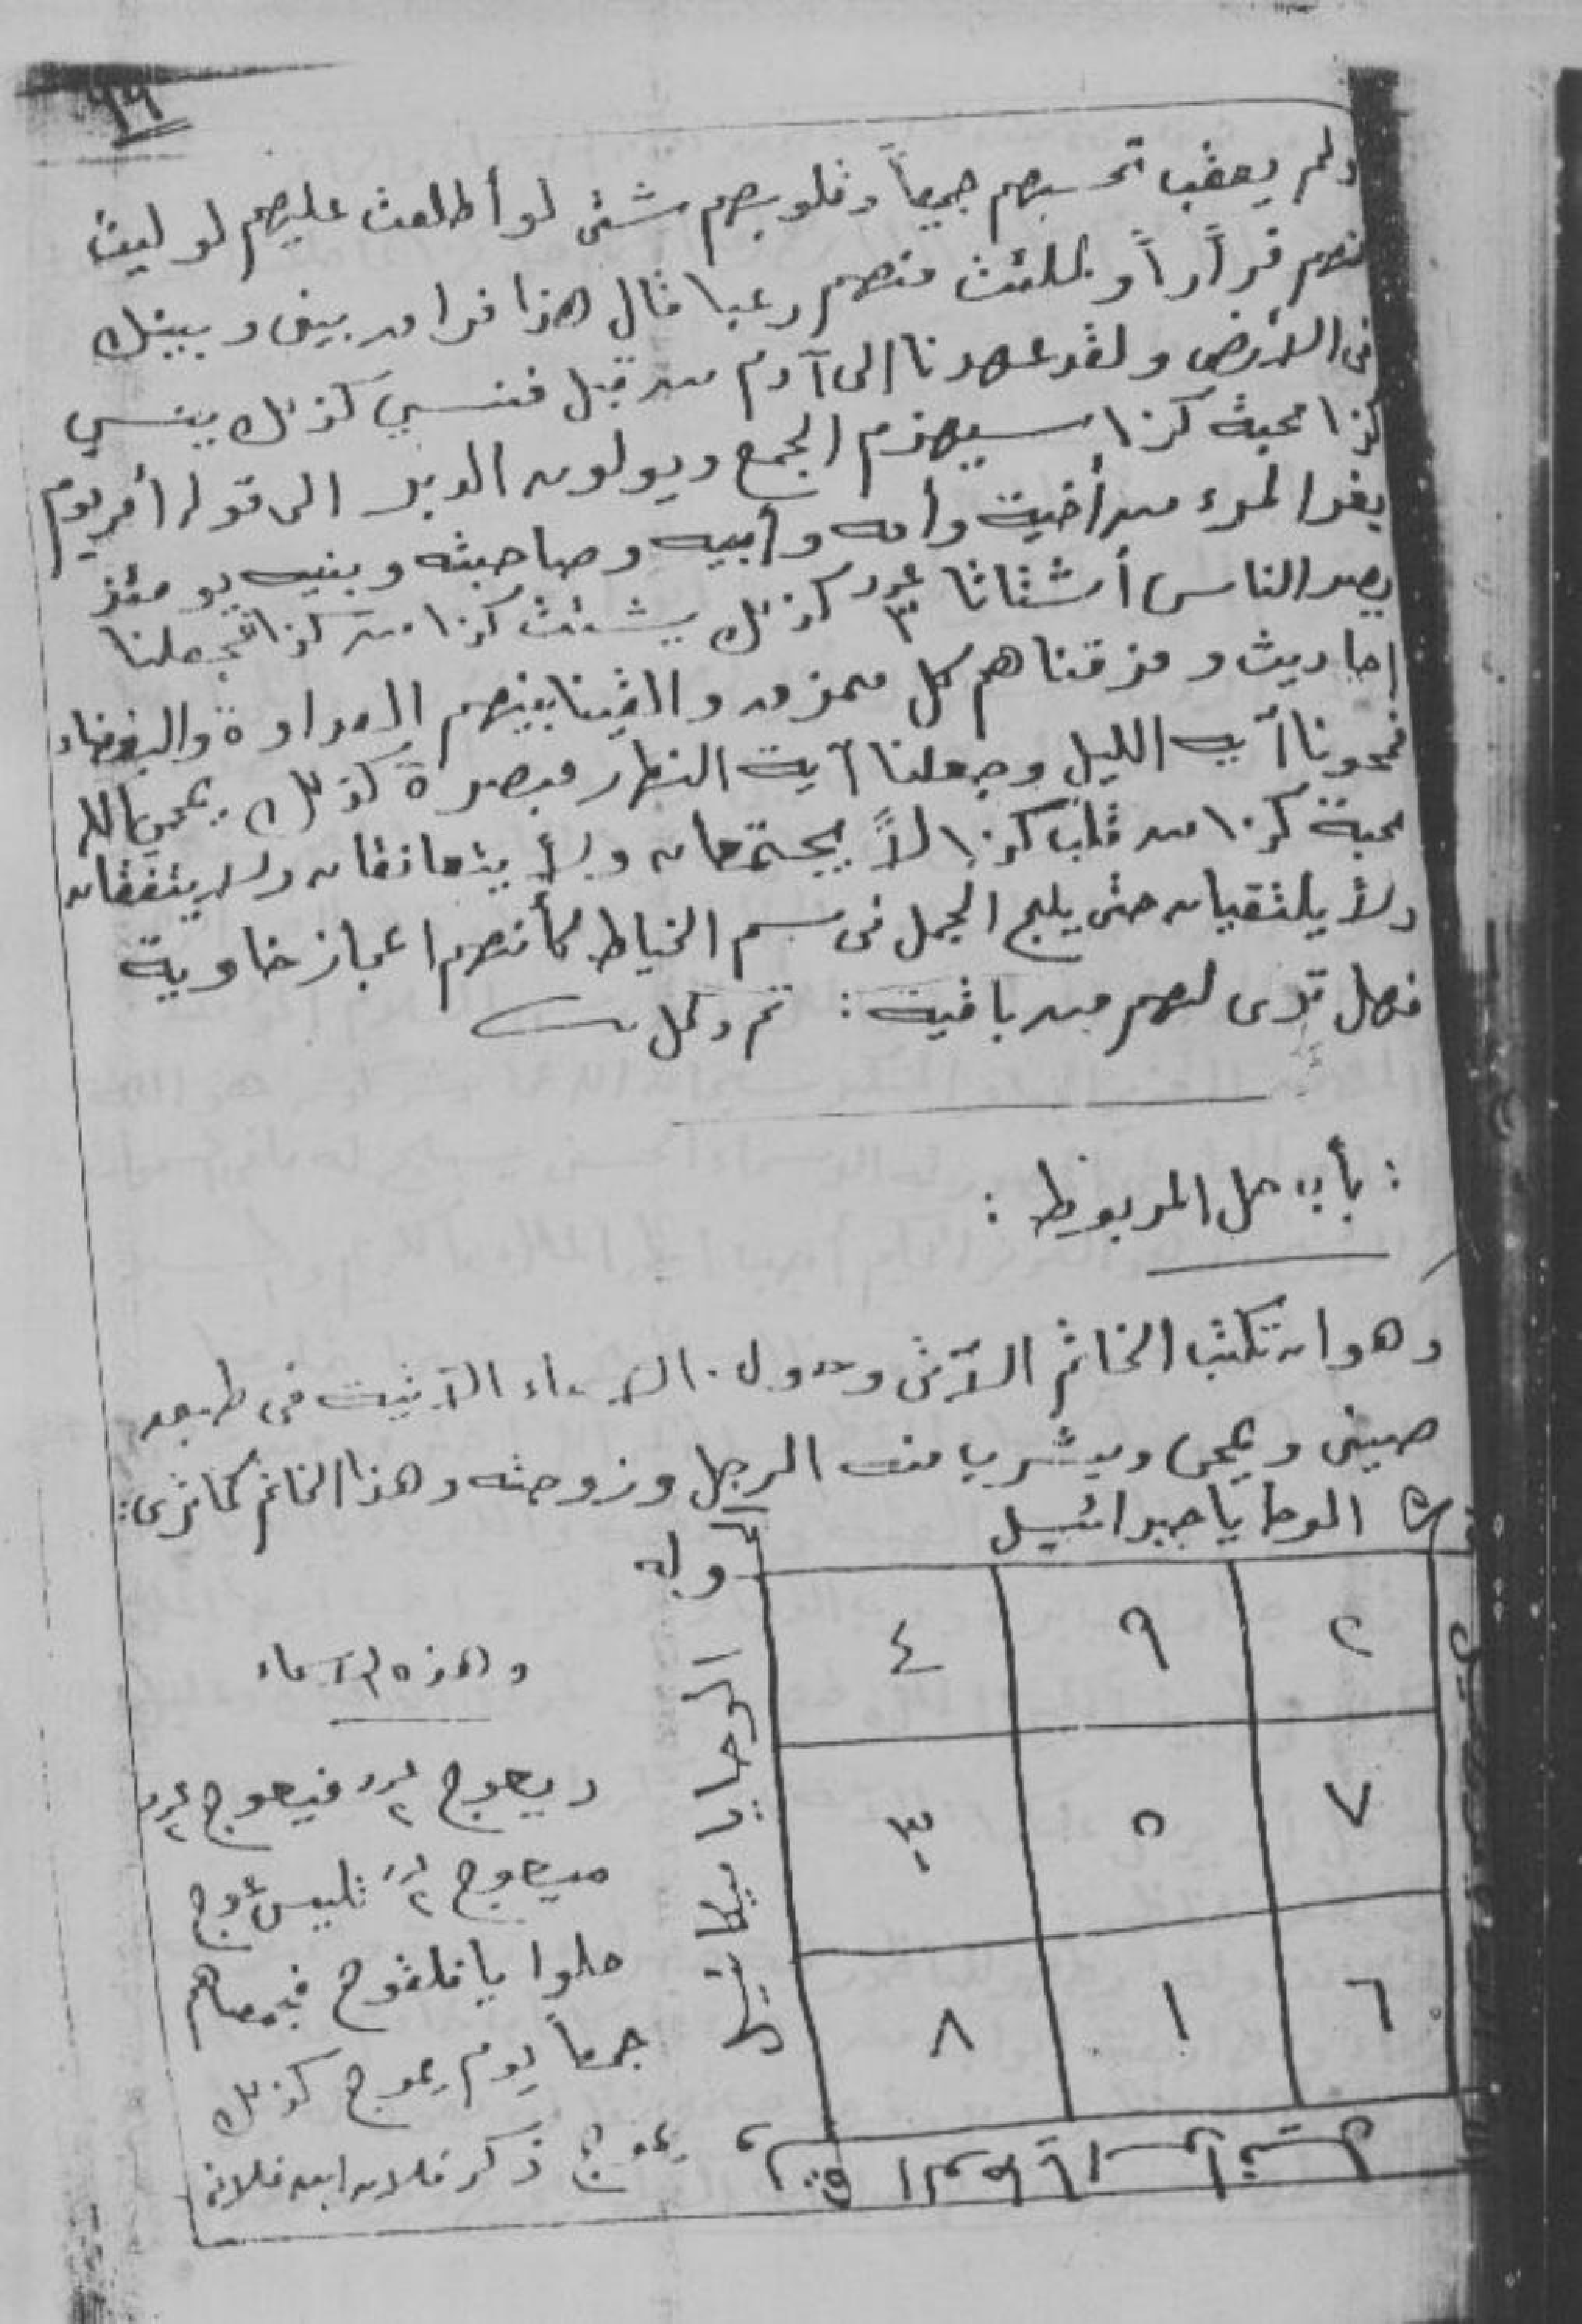 ٩٩
ولم يعقب تحسبهم جميعاً وقلوبهم شتى لو أطلعت عليهم لو ليت
منهم فراراً ولملئت منهم رعبا قال هذا فراق بينى وبينك
فى الأرض ولقد عهدنا الى آدم من قبل فنسي كذلك ينسي
كذا محبة كذا سيهزم الجمع ويولون الدبر الى قوله أمر يوم
يفر المرء من أخية وأمه وأبيه وصاحبته وبنيه يومئذ
يصدر الناس أشتاتا عدد ٣ كذلك يشتت كذا من كذا فجعلنا
احاديث ومزقناهم كل ممزق والقينا بينهم العداوة والبغضاء
فمحونا آية الليل وجعلنا آية النهار مبصرة كذلك يمحى الله
محبة كذا من قلب كذا لا يجتمعان ولا يتعانقان ولا يتفقان
ولا يلتقيان حتى يلج الجمل فى سم الخياط كأنهم اعجاز خاوية
فهل ترى لهم من باقية : تم وكمل
: بأب حل المربوط :
وهو ان تكتب الخاتم الآتى وحول الاسماء الآتية فى طبق
صينى ويمحى ويشرب منه الرجل وزوجته وهذا الخاتم كما ترى :
الوحا يا جبرائيل
٢ ٩ ٤
٧ ٥ ٣
٦ ١ ٨
الوحا يا ميكائيل
وهذه الاسماء
ديعوج عدد ٢ فيعوج عدد ٢
ميعوج عدد ٢
حلوا يا فجمعناهم
جمعاً يوم يموج كذلك
يموج ذكر فلان ابن فلانه